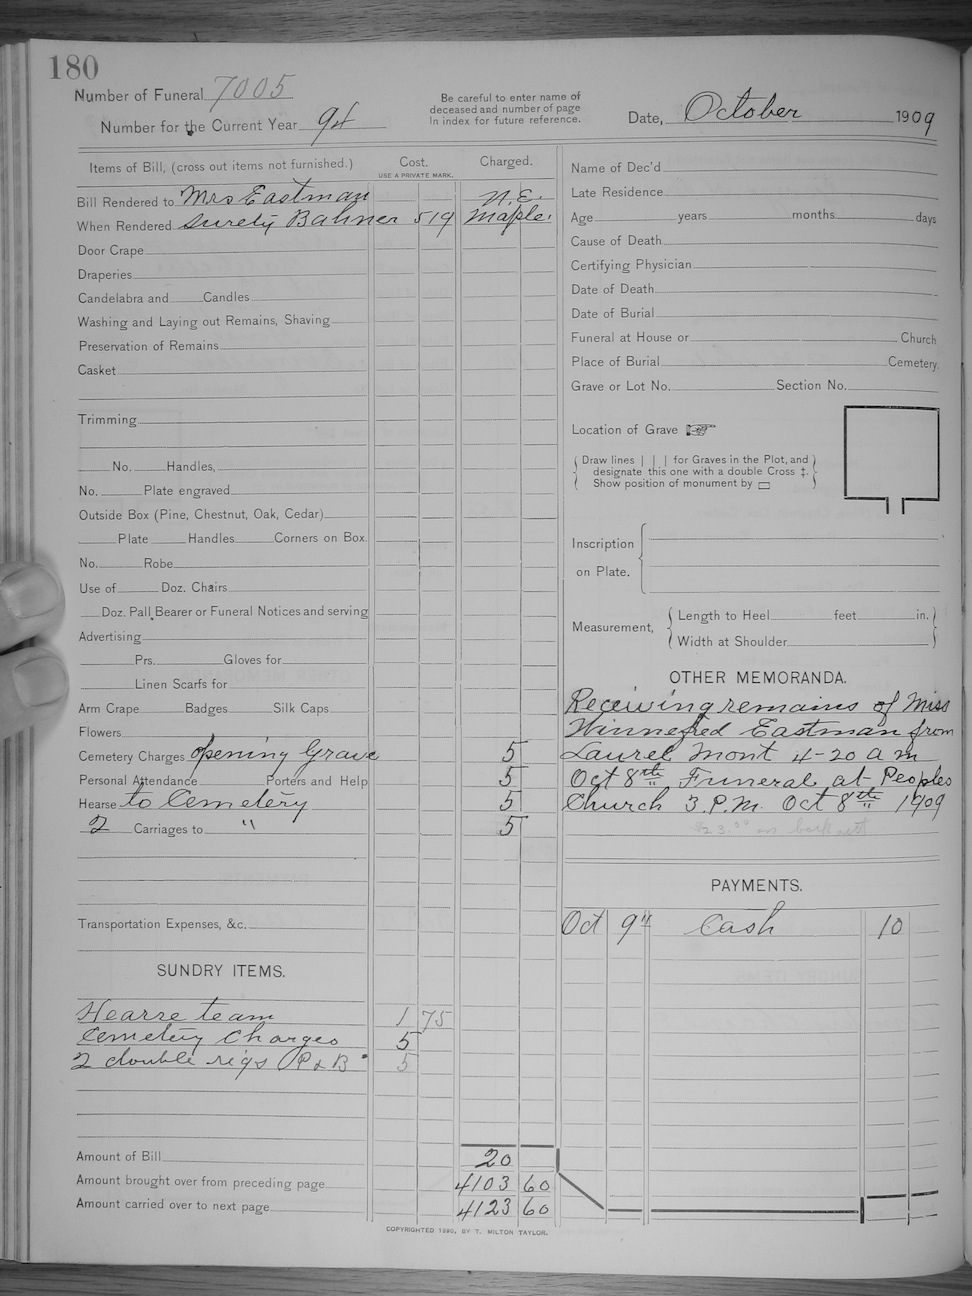 180
Number of Funeral 7005
Number for the Current Year 94
Be careful to enter name of
deceased and number of page
in index for future reference.
Date, October 1909
Items of Bill, (cross out items not furnished.) Cost. Charged.
USE A PRIVATE MARK.
Bill Rendered to Mrs Eastman N.E.
When Rendered surety Bahner 519 Maple.
Door Crape
Draperies
Candelabra and Candles
Washing and Laying out Remains, Shaving
Preservation of Remains
Casket
Trimming
No. Handles,
No. Plate engraved
Outside Box (Pine, Chestnut, Oak, Cedar)
Plate Handles Corners on Box.
No. Robe
Use of Doz. Chairs
Doz. Pall Bearer or Funeral Notices and serving
Advertising
Prs. Gloves for
Linen Scarfs for
Arm Crape Badges Silk Caps
Flowers
Cemetery Charges opening Grave 5
Personal Attendance Porters and Help 5
Hearse to Cemetery 5
2 Carriages to " 5
Transportation Expenses, &c.
SUNDRY ITEMS.
Hearse team 1 75
Cemetery Charges 5
2 double rigs P & B 5
Amount of Bill 20
Amount brought over from preceding page 4103 60
Amount carried over to next page 4123 60
Name of Dec'd
Late Residence
Age years months days
Cause of Death
Certifying Physician
Date of Death
Date of Burial
Funeral at House or Church
Place of Burial Cemetery.
Grave or Lot No. Section No.
Location of Grave
Draw lines | | | for Graves in the Plot, and
designate this one with a double Cross ‡.
Show position of monument by ▭
Inscription
on Plate.
Measurement, Length to Heel feet in.
Width at Shoulder
OTHER MEMORANDA.
Receiving remains of Miss
Winnefred Eastman from
Laurel Mont 4-20 a m
Oct 8th Funeral at Peoples
Church 3.P.M. Oct 8th 1909
PAYMENTS.
Oct 9" Cash 10
COPYRIGHTED 1890, BY T. MILTON TAYLOR.